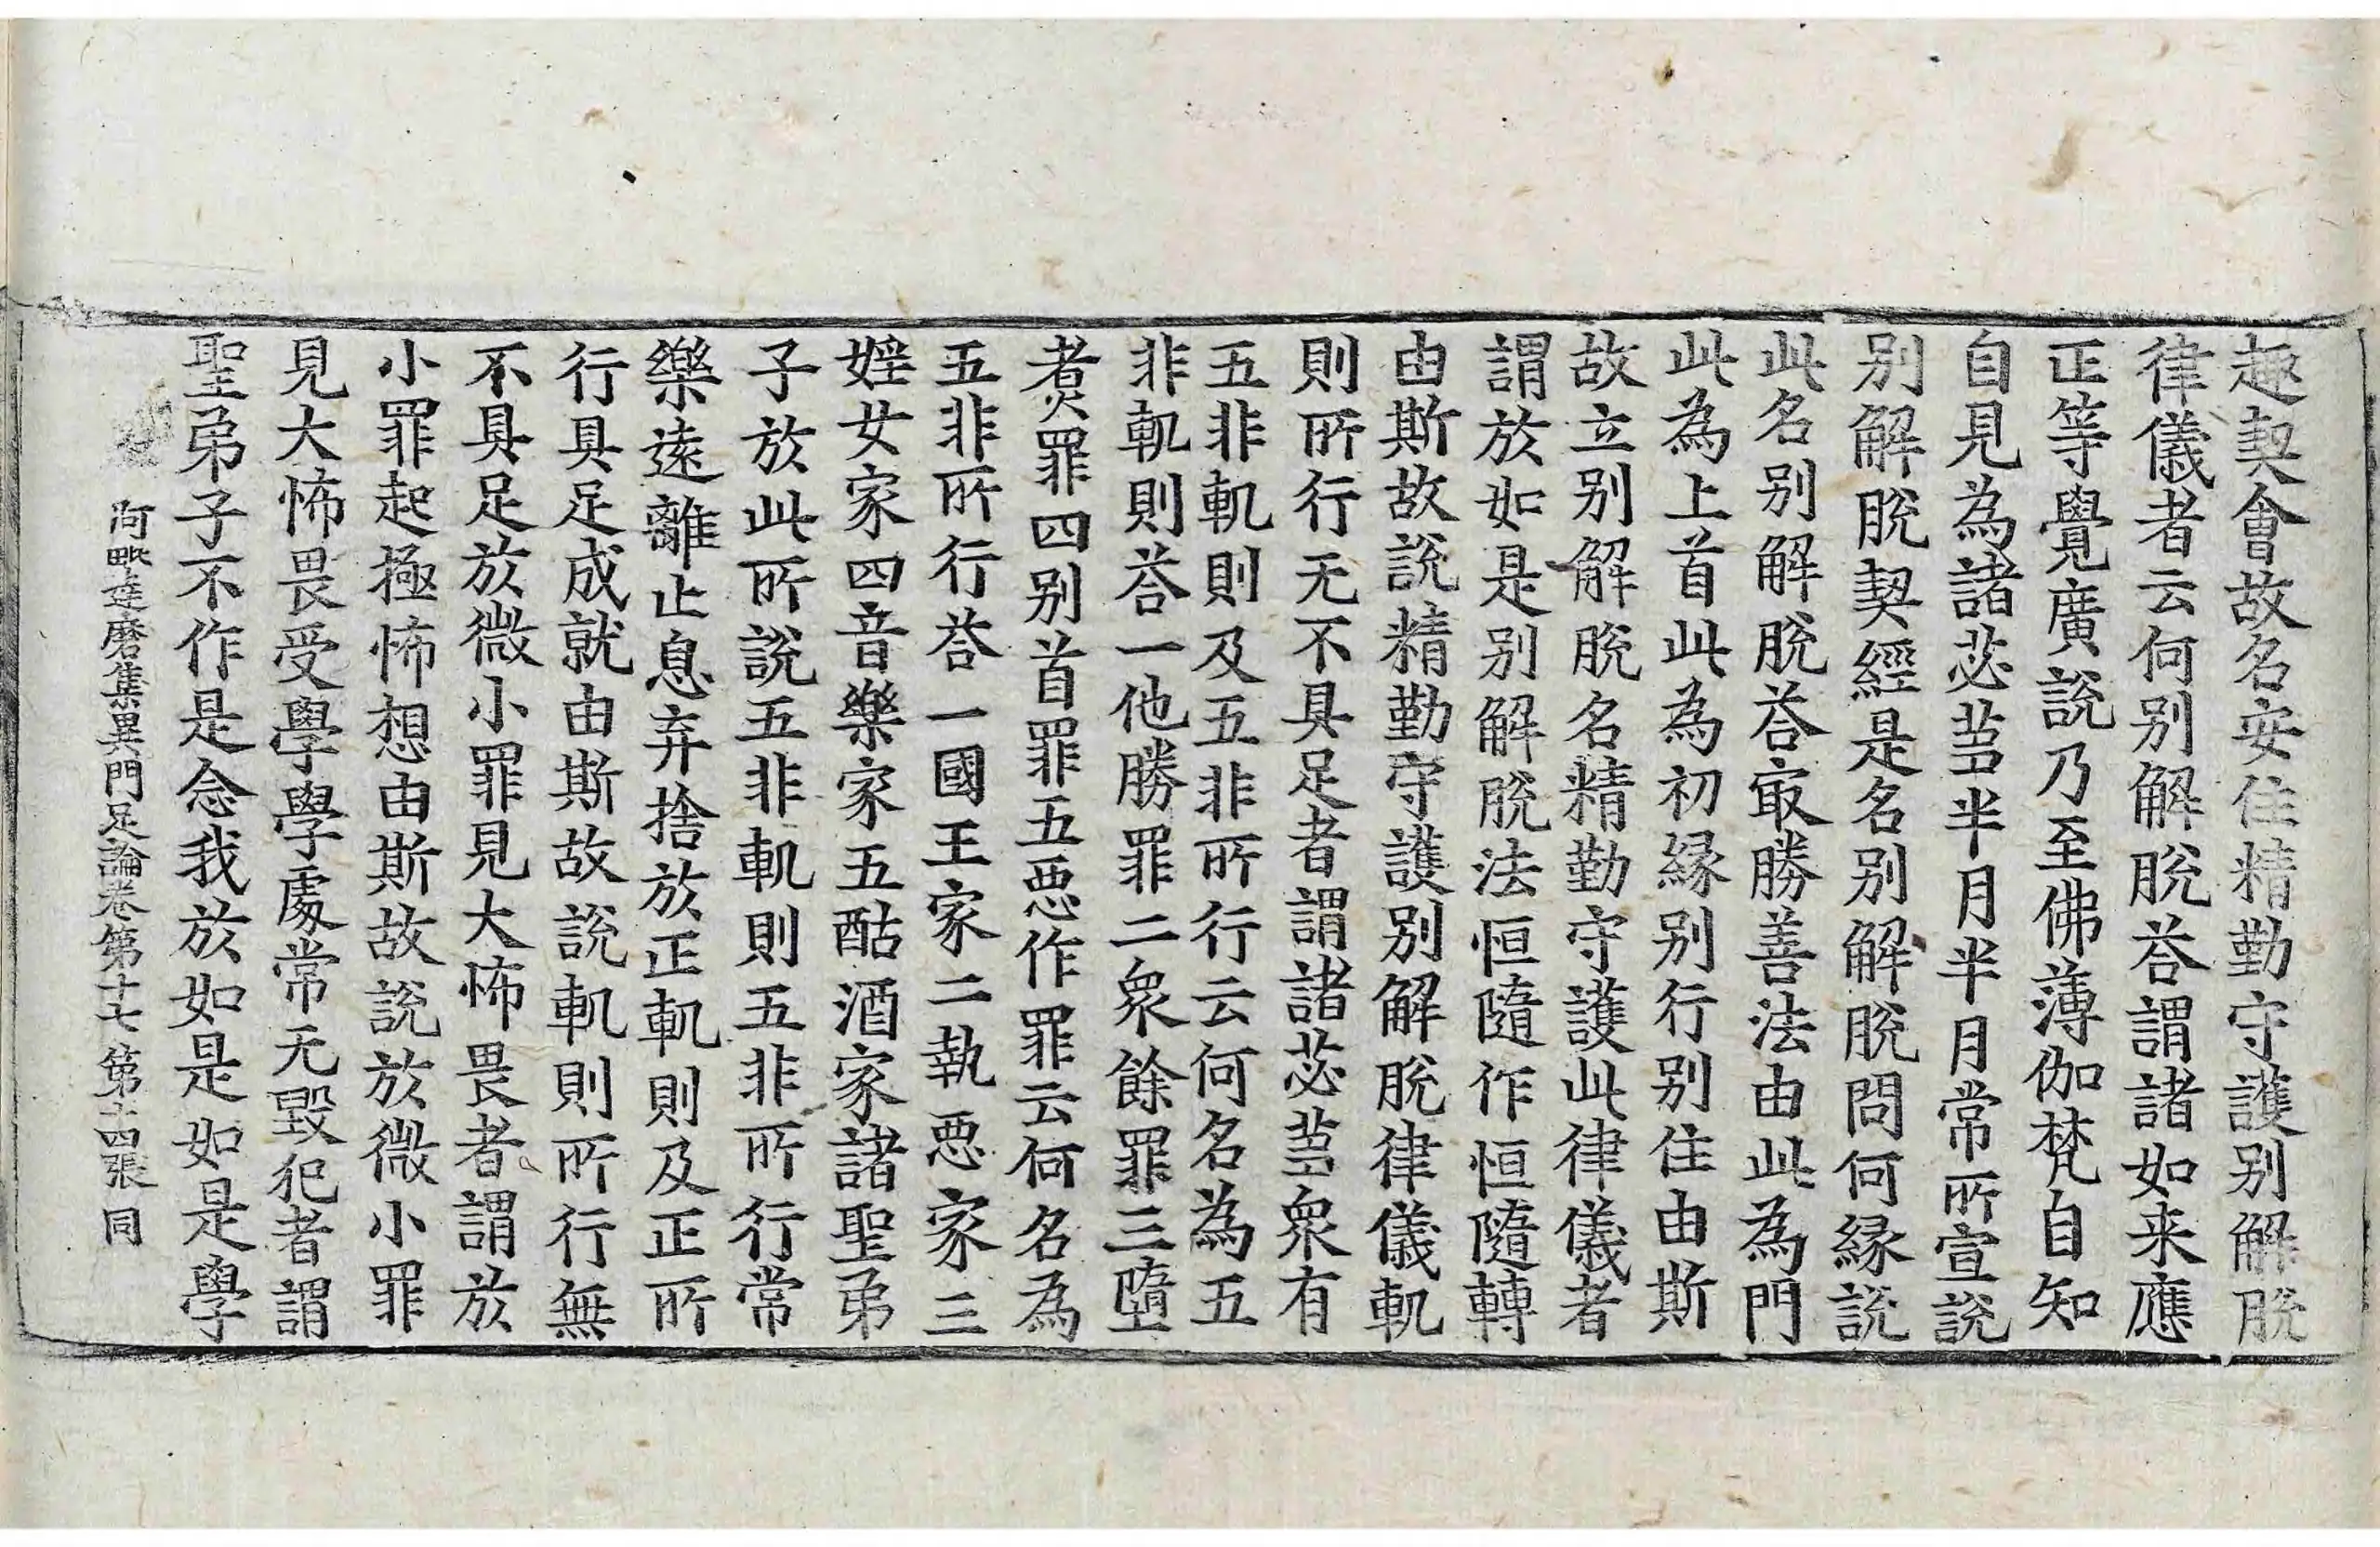 趣契會故名安住精勤守護别解脫
律儀者云何别解脫荅謂諸如来應
正等覺廣說乃至佛薄伽梵自知
自見為諸苾蒭半月半月常所宣說
别解脫契經是名别解脫問何縁說
此名别解脫荅㝡勝善法由此為門
此為上首此為初縁别行别住由斯
故立别解脫名精勤守護此律儀者
謂於如是别解脫法恒隨作恒隨轉
由斯故說精勤守護别解脫律儀軌
則所行无不具足者謂諸苾蒭衆有
五非軌則及五非所行云何名為五
非軌則荅一他勝罪二衆餘罪三墮
煑罪四别首罪五惡作罪云何名為
五非所行荅一國王家二執惡家三
婬女家四音樂家五酤酒家諸聖弟
子於此所說五非軌則五非所行常
樂遠離止息弃捨於正軌則及正所
行具足成就由斯故說軌則所行無
不具足於微小罪見大怖畏者謂於
小罪起極怖想由斯故說於微小罪
見大怖畏受學學處常无毀犯者謂
聖弟子不作是念我於如是如是學
阿毗達磨集異門足論卷第十七 第十四張 同